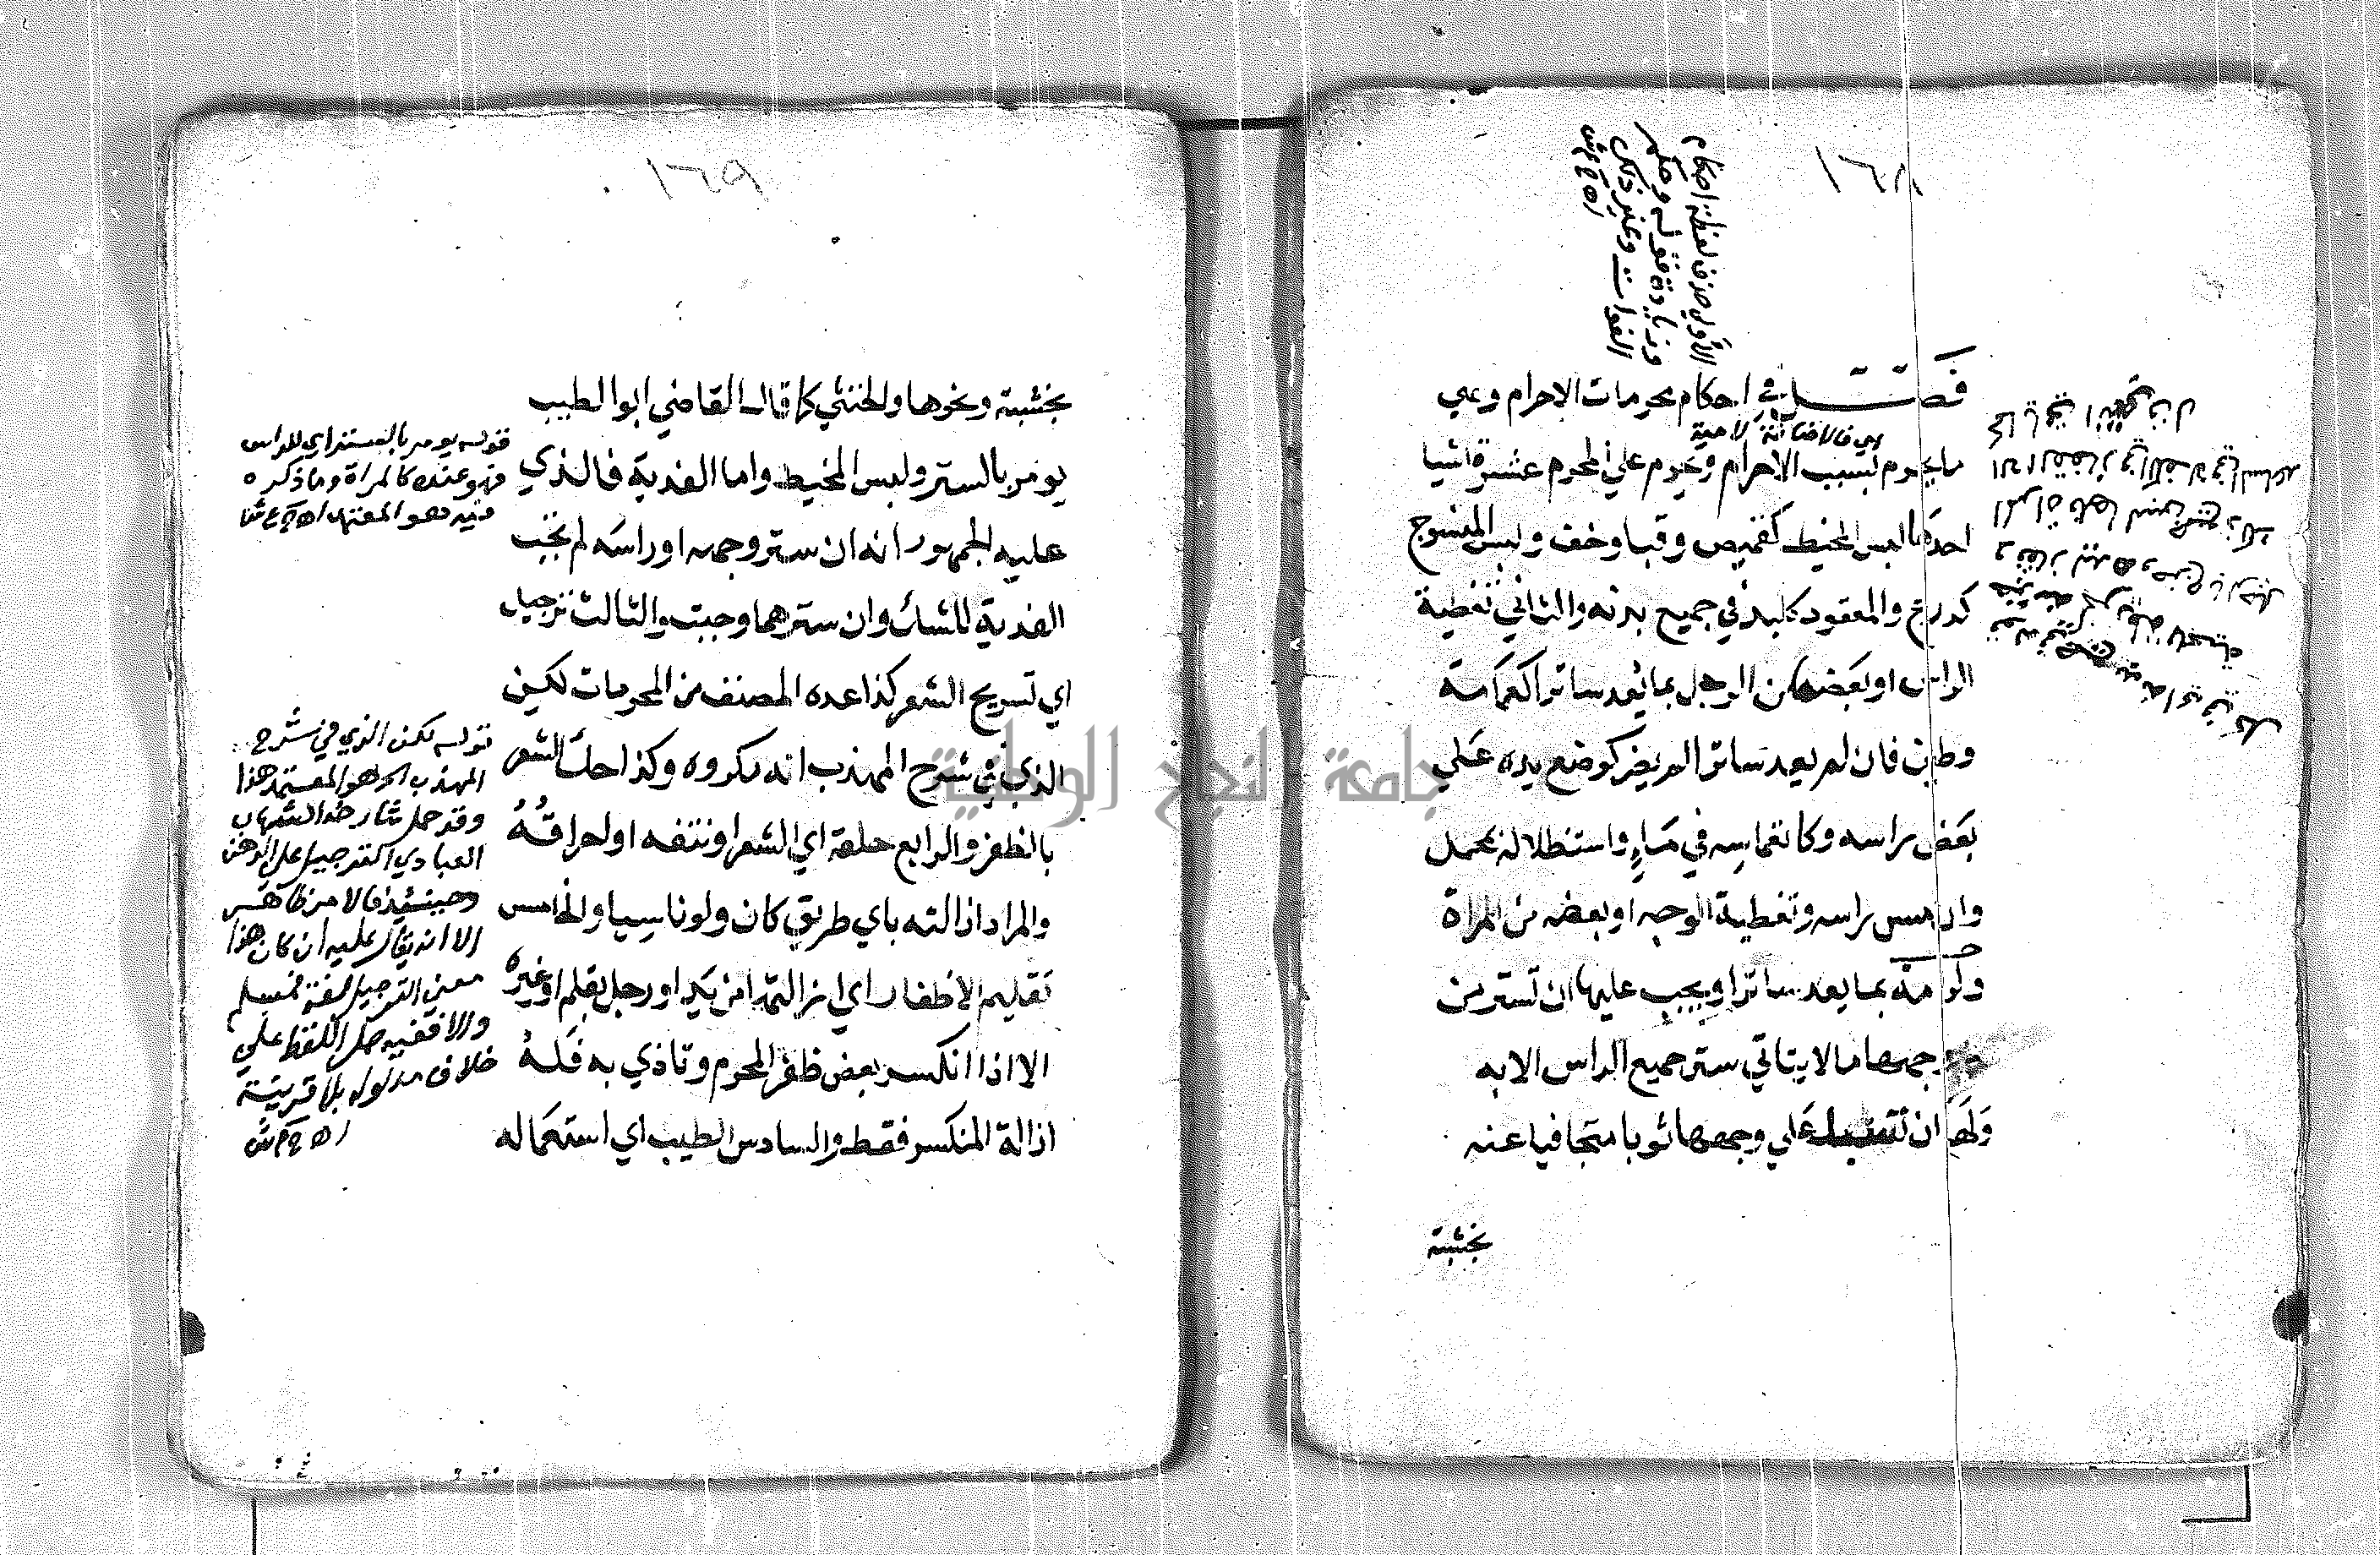 ١٦٨
الأولي حذف لفظة احكام
وزيادة قوله وحكم
الفوات وغير ذلك
اه ع ش
فصل في احكام محرمات الاحرام وهي
اي فالاضافة لامية
ما يحرم بسبب الاحرام ويحرم علي المحرم عشرة اشيا
احدها لبس المخيط كقميص وقبا وخف ولبس المنسوج
كدرع والمعقود كلبد في جميع بدنه والثاني تغطية
الراس او بعضها من الرجل بما يعد ساترا كعمامة
وطين فان لم يعد ساترا لم يضر كوضع يده علي
بعض راسه وكانغماسه في ماء واستظلاله بمحمل
وان مس راسه وتغطية الوجه او بعضه من المراة
ولو امة بما يعد ساترا ويجب عليها ان تستر من
وجهها ما لا يتاتي ستر جميع الراس الا به
ولها ان تسبل علي وجهها ثوبا متجافيا عنه
بخشبة
١٦٩
بخشبة ونحوها والخنثي كما قال القاضي ابو الطيب
يومر بالستر ولبس المخيط واما الفدية فالذي
عليه الجمهور انه ان ستر وجهه او راسه لم تجب
الفدية للشك وان سترهما وجبت والثالث ترجيل
اي تسريح الشعر كذا عده المصنف من المحرمات لكن
الذي في شرح المهذب انه مكروه وكذا حك الشعر
بالظفر والرابع حلقه اي الشعر او نتفه او احراقه
والمراد ازالته باي طريق كان ولو ناسيا والخامس
تقليم الاظفار اي ازالتها من يد او رجل بقلم او غيره
الا اذا انكسر بعض ظفر المحرم وتاذي به فله
ازالة المنكسر فقط والسادس الطيب اي استعماله
قوله يومر بالستر اي للراس
فهو عنده كالمراة وما ذكره
فيه هو المعتمد اه ع ش
قوله لكن الذي في شرح
المهذب الخ هو المعتمد هذا
وقد حمل شارحه الشهاب
العبادي الترجيل علي الدهن
وحينئذ فالامر ظاهر
الا انه يقال عليه ان كان هذا
معني الترجيل لغة فمسلم
والا ففيه حمل اللفظ علي
خلاف مدلوله بلا قرينة
اه ع ش
جامعة النجاح الوطنية